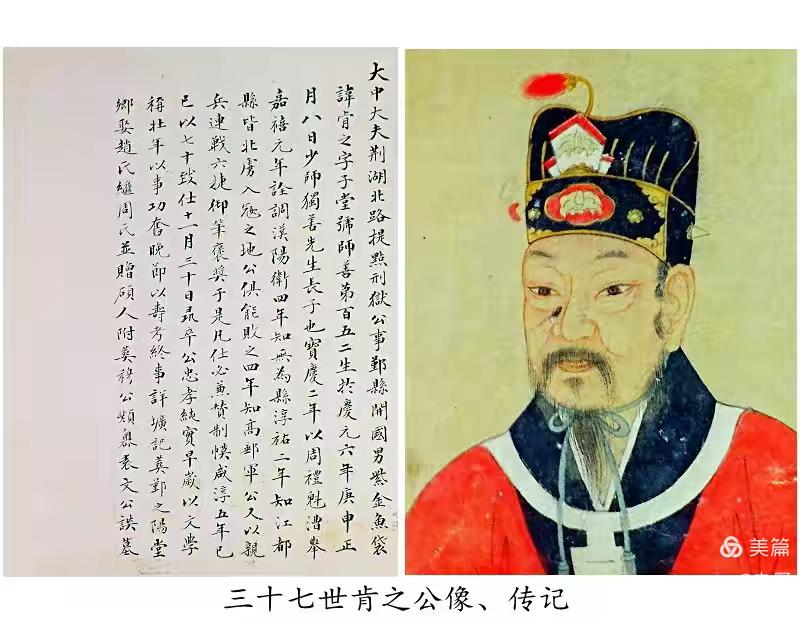 大中大夫荆湖北路提點刑獄公事鄞縣開國男紫金魚袋
諱肯之字子堂號師善第百五二生於慶元六年庚申正
月八日少師獨善先生長子也寶慶二年以周禮魁漕舉
嘉禧元年詮調漢陽衛四年知無為縣淳祐二年知江都
縣皆北虜入寇之地公俱能敗之四年知高郵軍公又以親
兵連戰六捷御筆褒奨于是凡仕必兼贊制幙咸淳五年已
已以七十致仕十一月三十日卒公忠孝純實早歲以文學
稱壯年以事功奮晚節以壽考終事詳壙記葬鄞之陽堂
鄉娶趙氏繼周氏並贈碩人附葬穆公袁文公談墓
美篇
三十七世肯之公像、传记